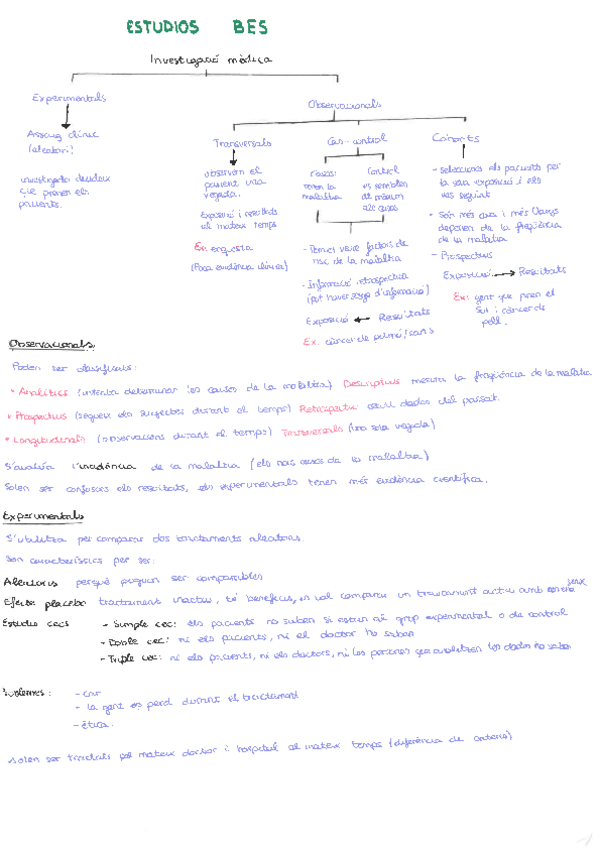 ESTUDIOS BES
Investigació mèdica
Experimentals
Observacionals
Assaig clínic
(aleatori)
investigador decideix
qui prenen els
pacients.
Transversals
observem el
pacient una
vegada.
Exposició i resultats
al mateix temps
Ex: enquesta
(Poca evidència clínica)
Cas-control
casos:
tenen la
malaltia
Control
es semblen
al màxim
als casos
- Permet veure factors de
risc de la malaltia
- Informació retrospectiva
(pot haver biaix d'informació)
Exposició ← Resultats
Ex: càncer de pulmó/
Cohorts
- selecciona els pacients per
la seva exposició i els
ves seguint
- Són més cara i més llargs
depenen de la freqüència
de la malaltia
- Prospectius
Exposició → Resultats
Ex: gent que pren el
sol i càncer de
pell.
Observacionals
Poden ser clasificats:
• Analítics (intenta determinar les causes de la malaltia) Descriptius mesura la freqüència de la malaltia
• Prospectius (segueix els subjectes durant el temps) Retrospectiu dades del passat.
• Longitudinals (observacions durant el temps) Transversals (una sola vegada)
S'avalúa l'incidència de la malaltia (els nous casos de la malaltia)
Solen ser confosos els resultats, els experimentals tenen més evidència científica.
Experimentals
S'utilitza per comparar dos tractaments aleatoris.
Són característics per ser:
Aleatoris perquè puguin ser comparables
Efecte placebo tractament inactiu, té beneficis, es vol comparar un tractament actiu amb
Estudis cecs - Simple cec: els pacients no saben si estan al grup experimental o de control
- Doble cec: ni els pacients, ni el doctor ho saben
- Triple cec: ni els pacients, ni els doctors, ni les persones que avaluen les dades ho saben
Problemes: - car
- la gent es perd durant el tractament
- ètica.
solen ser tractats pel mateix doctor i hospital al mateix temps (diferència de criteris)